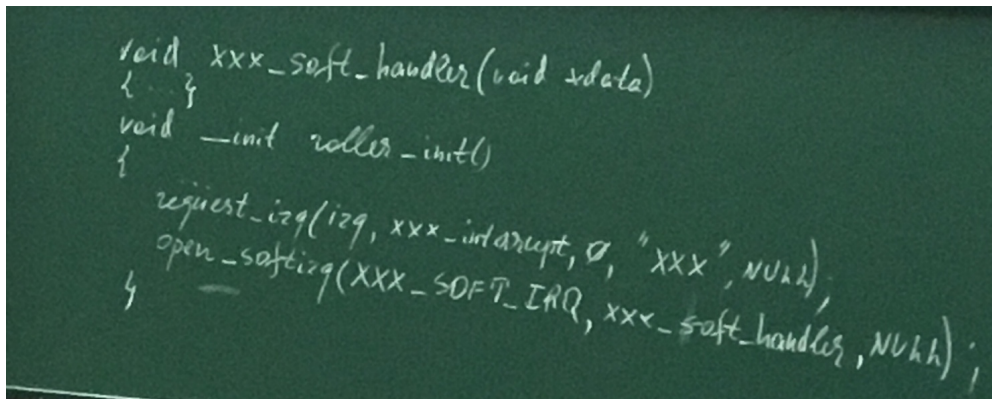 void xxx_soft_handler(void *data)
{ ... }
void __init roller_init()
{
request_irq(irq, xxx_interrupt, 0, "xxx", NULL);
open_softirq(XXX_SOFT_IRQ, xxx_soft_handler, NULL);
}